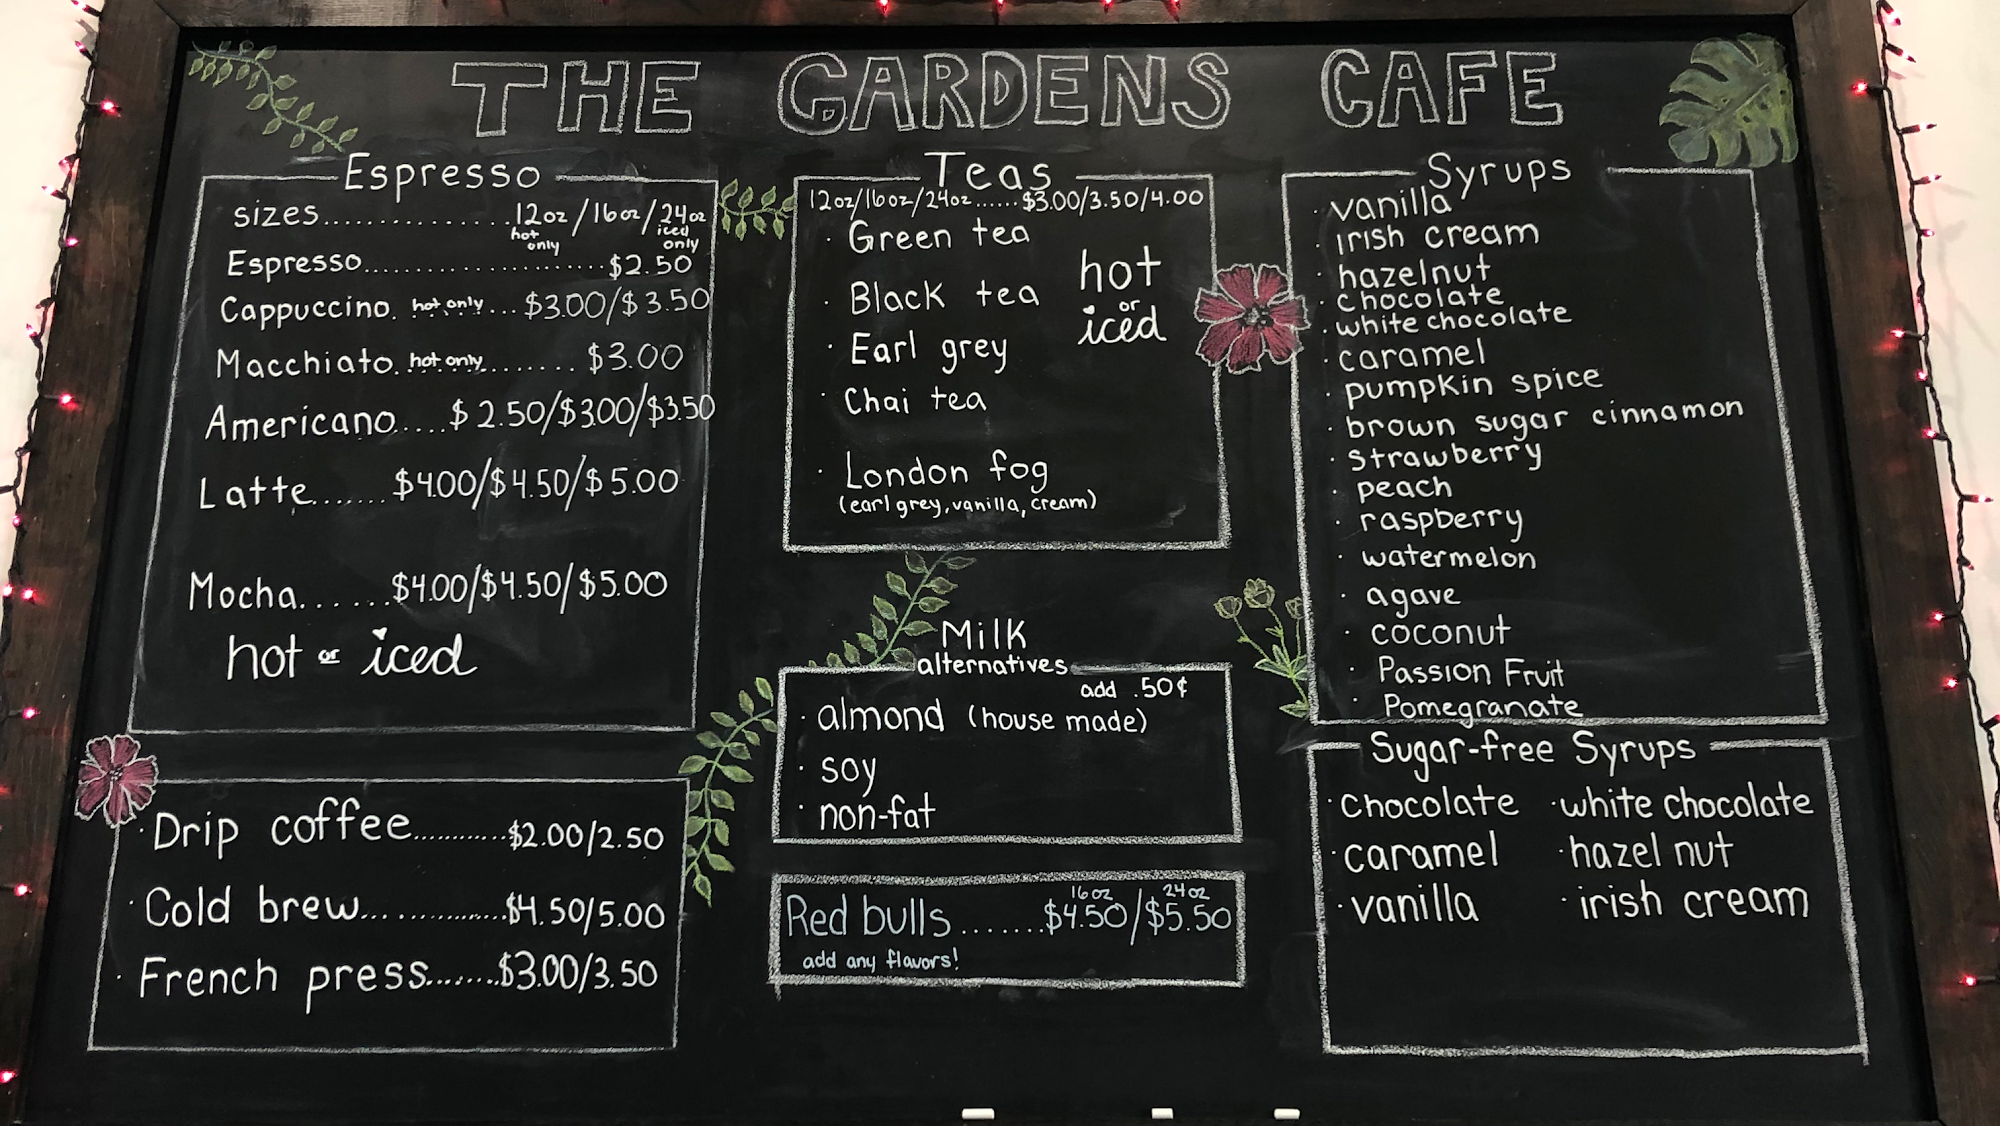 THE GARDENS CAFE
Espresso
sizes.................12oz/16oz/24oz
hot only
iced only
Espresso........................$2.50
Cappuccino. hot only....$3.00/$3.50
Macchiato. hot only.........$3.00
Americano.....$2.50/$3.00/$3.50
Latte.......$4.00/$4.50/$5.00
Mocha.......$4.00/$4.50/$5.00
hot or iced
· Drip coffee...........$2.00/2.50
· Cold brew................$4.50/5.00
· French press........$3.00/3.50
Teas
12oz/16oz/24oz......$3.00/3.50/4.00
· Green tea
· Black tea
· Earl grey
· Chai tea
hot
or
iced
· London fog
(earl grey, vanilla, cream)
Milk
alternatives
add .50¢
· almond (house made)
· soy
· non-fat
16oz 24oz
Red bulls.......$4.50/$5.50
add any flavors!
Syrups
· vanilla
· irish cream
· hazelnut
· chocolate
· white chocolate
· caramel
· pumpkin spice
· brown sugar cinnamon
· strawberry
· peach
· raspberry
· watermelon
· agave
· coconut
· Passion Fruit
· Pomegranate
Sugar-free Syrups
· chocolate · white chocolate
· caramel · hazel nut
· vanilla · irish cream